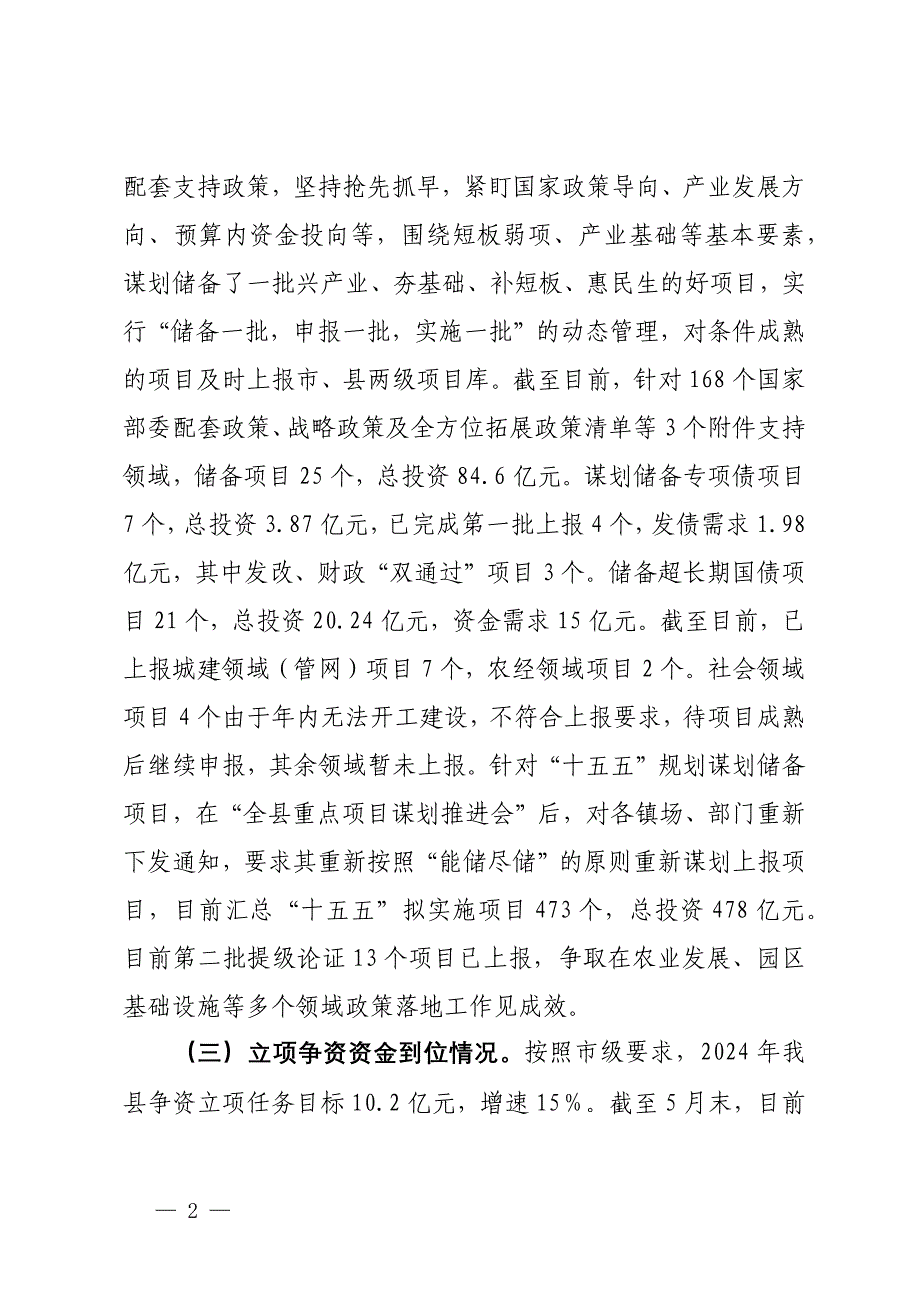 配套支持政策，坚持抢先抓早，紧盯国家政策导向、产业发展方
向、预算内资金投向等，围绕短板弱项、产业基础等基本要素，
谋划储备了一批兴产业、夯基础、补短板、惠民生的好项目，实
行“储备一批，申报一批，实施一批”的动态管理，对条件成熟
的项目及时上报市、县两级项目库。截至目前，针对 168 个国家
部委配套政策、战略政策及全方位拓展政策清单等 3 个附件支持
领域，储备项目 25 个，总投资 84.6 亿元。谋划储备专项债项目
7 个，总投资 3.87 亿元，已完成第一批上报 4 个，发债需求 1.98
亿元，其中发改、财政“双通过”项目 3 个。储备超长期国债项
目 21 个，总投资 20.24 亿元，资金需求 15 亿元。截至目前，已
上报城建领域（管网）项目 7 个，农经领域项目 2 个。社会领域
项目 4 个由于年内无法开工建设，不符合上报要求，待项目成熟
后继续申报，其余领域暂未上报。针对“十五五”规划谋划储备
项目，在“全县重点项目谋划推进会”后，对各镇场、部门重新
下发通知，要求其重新按照“能储尽储”的原则重新谋划上报项
目，目前汇总“十五五”拟实施项目 473 个，总投资 478 亿元。
目前第二批提级论证 13 个项目已上报，争取在农业发展、园区
基础设施等多个领域政策落地工作见成效。
（三）立项争资资金到位情况。按照市级要求，2024 年我
县争资立项任务目标 10.2 亿元，增速 15%。截至 5 月末，目前
— 2 —